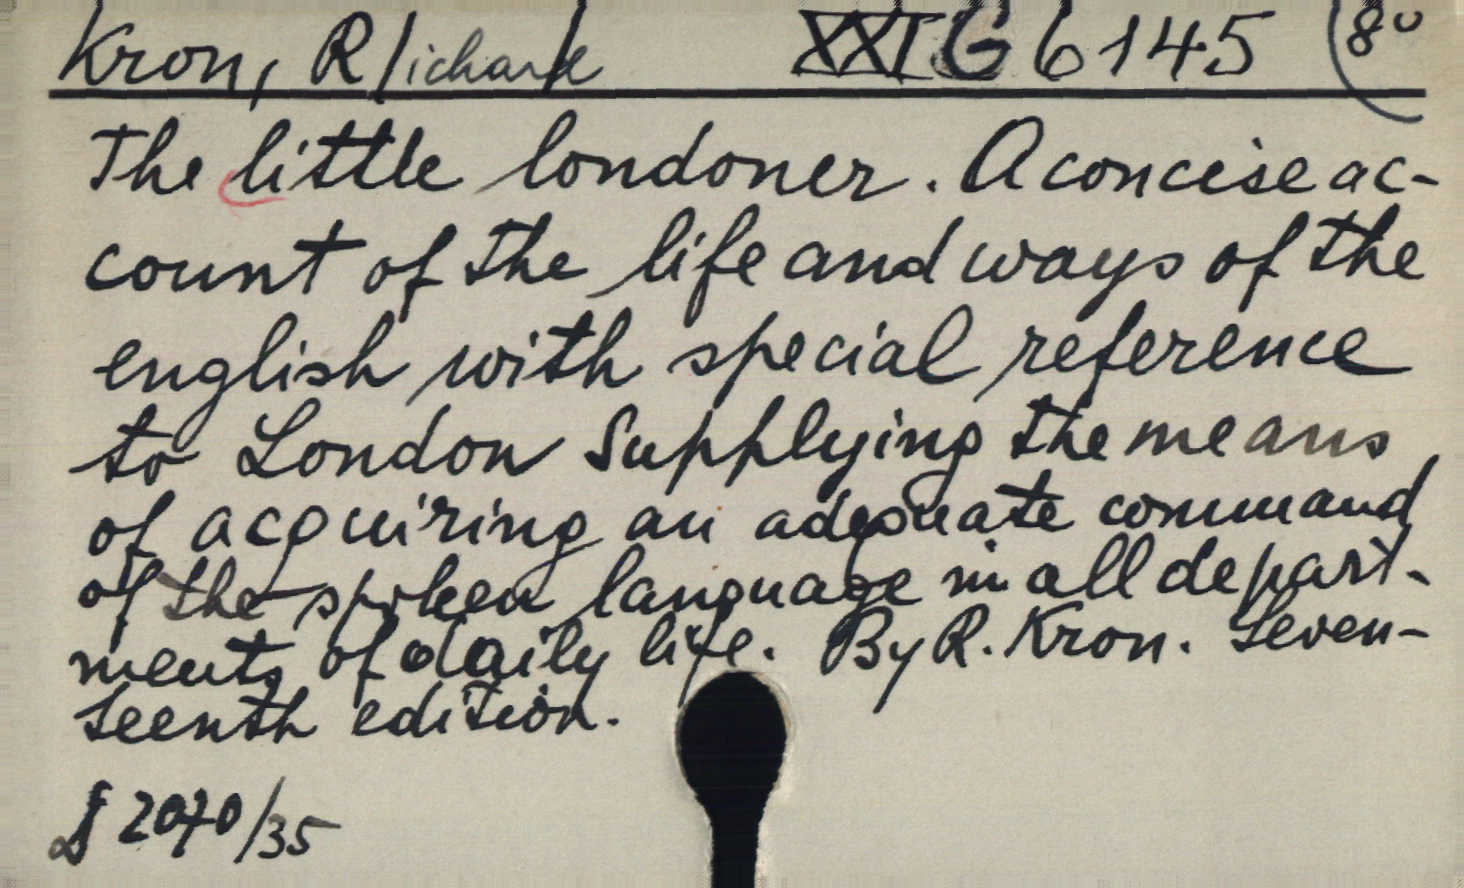 Kron, R/ichard/ XXI G 6145 (8°
The little londoner. A concise ac-
count of the life and ways of the
english with special reference
to London Supplying the means
of acquiring an adequate command
of the spoken language in all depart-
ments of daily life. By R. Kron. Seven-
teenth edition.
2070/35